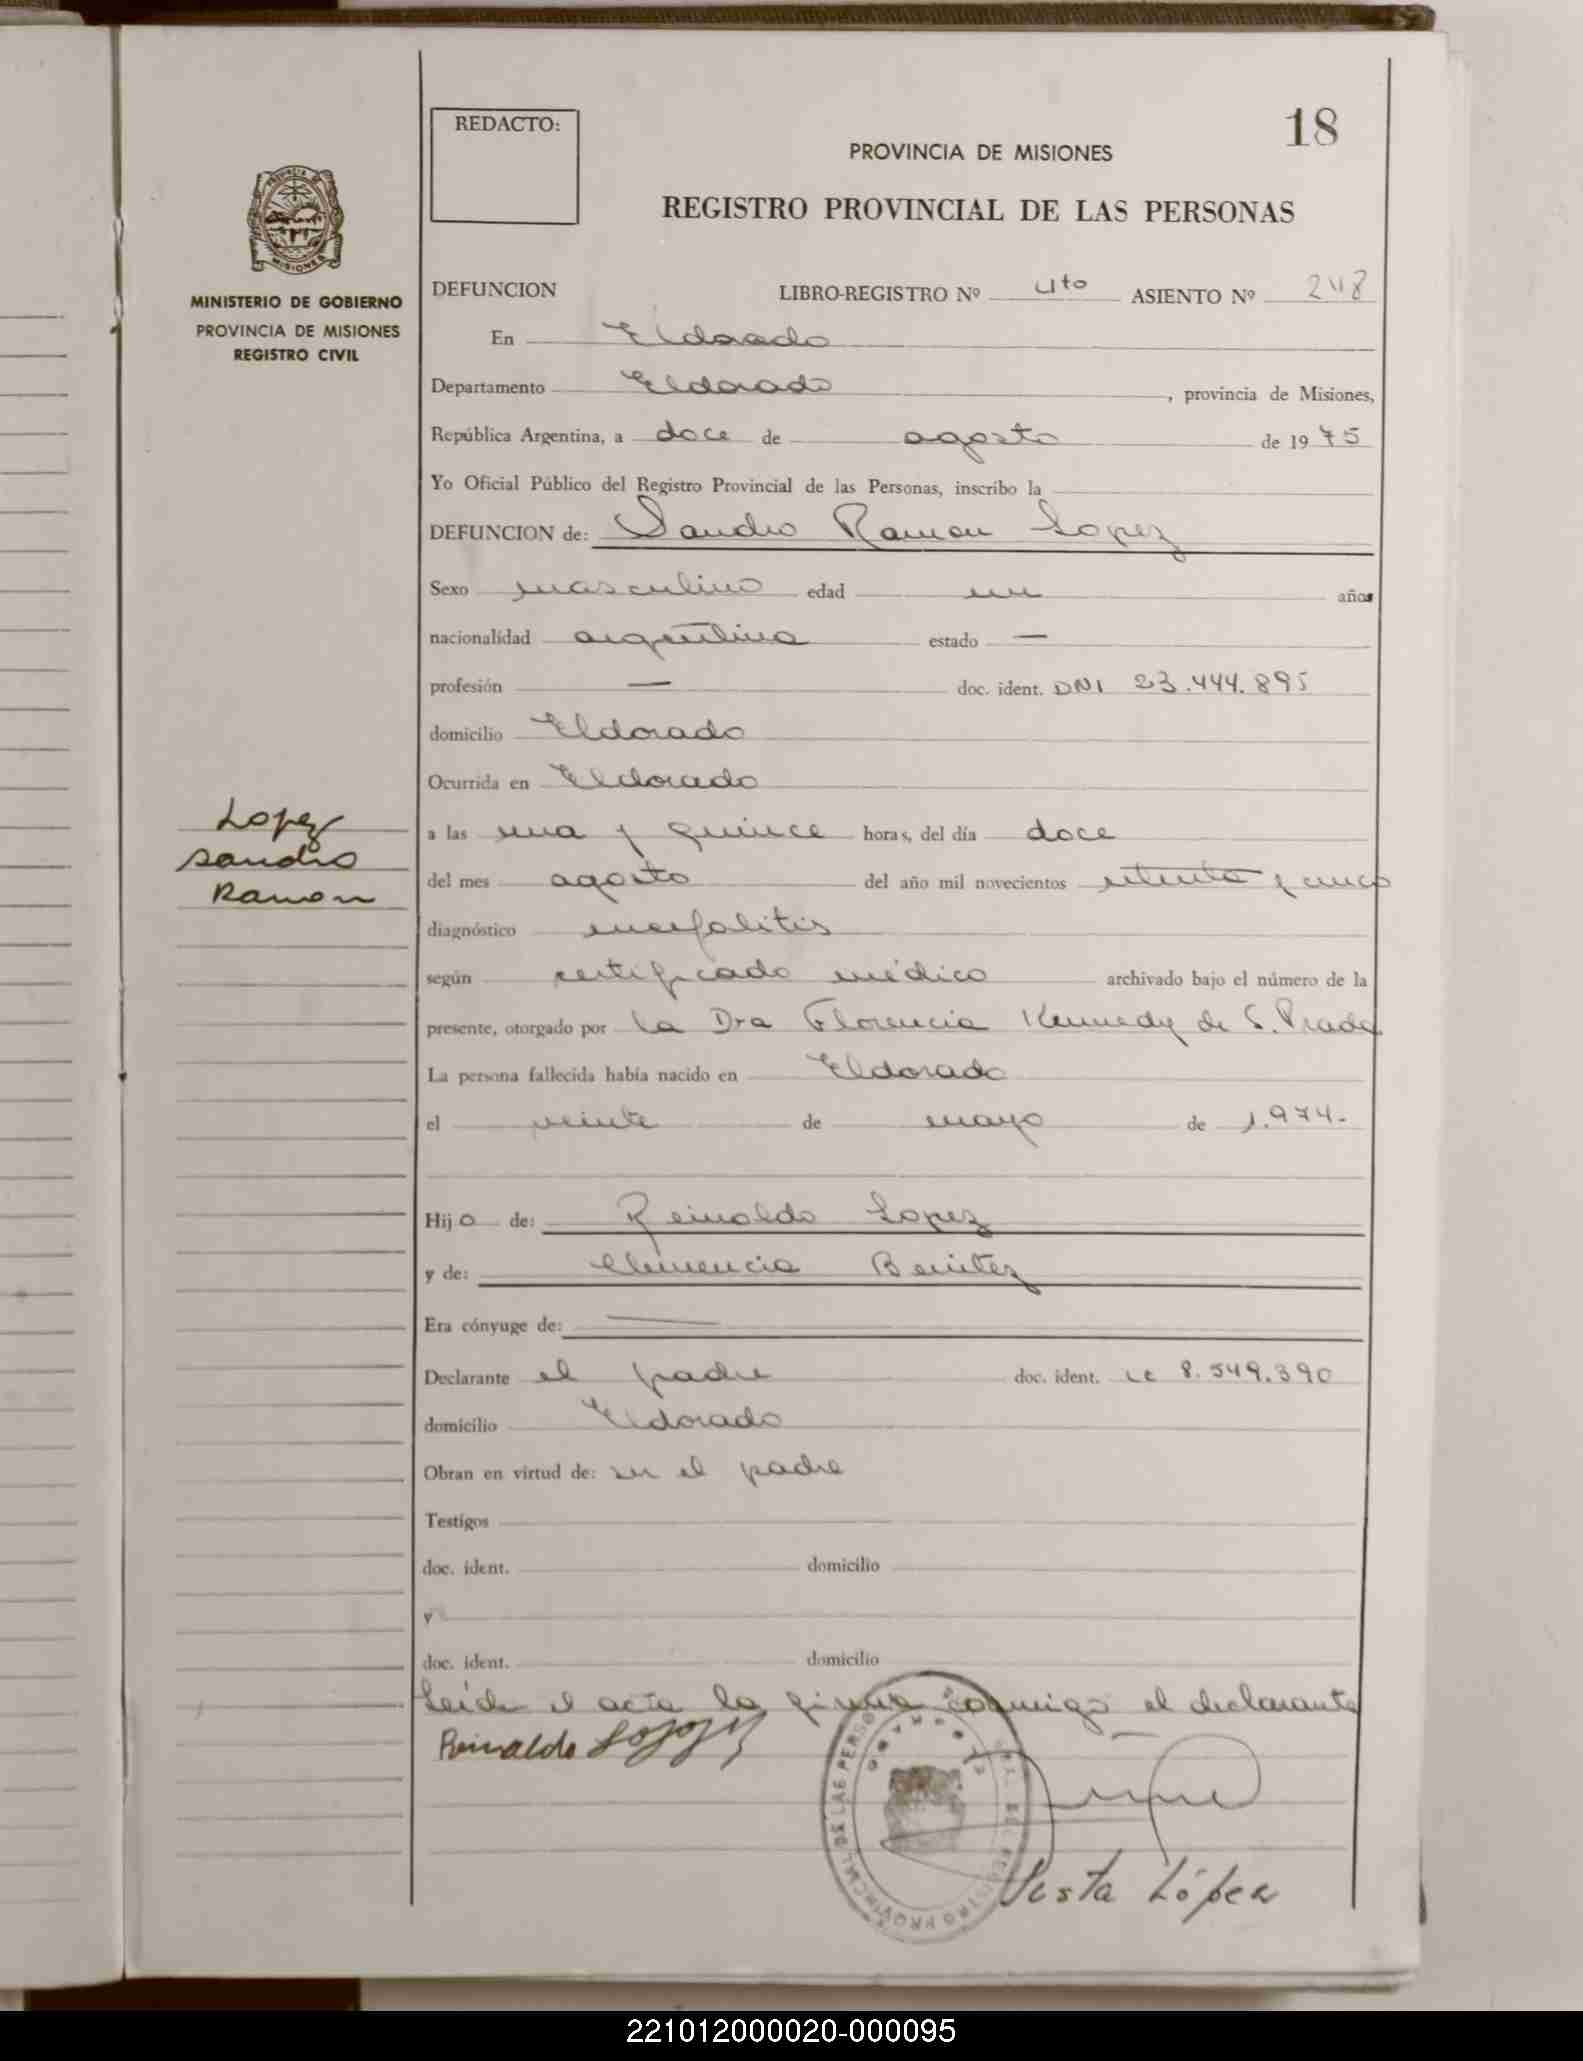 REDACTO:
18
PROVINCIA DE MISIONES
REGISTRO PROVINCIAL DE LAS PERSONAS
MINISTERIO DE GOBIERNO
PROVINCIA DE MISIONES
REGISTRO CIVIL
DEFUNCION LIBRO-REGISTRO Nº 4to ASIENTO Nº 248
En Eldorado
Departamento Eldorado, provincia de Misiones,
República Argentina, a doce de agosto de 1975
Yo Oficial Público del Registro Provincial de las Personas, inscribo la
DEFUNCION de: Sandro Ramon Lopez
Sexo masculino edad un años
nacionalidad argentina estado —
profesión — doc. ident. DNI 23.444.895
domicilio Eldorado
Ocurrida en Eldorado
Lopez
Sandro
Ramon
a las una y quince horas, del día doce
del mes agosto del año mil novecientos setenta y cinco
diagnóstico encefalitis
según certificado médico archivado bajo el número de la
presente, otorgado por la Dra Florencia Kennedy de S. Prada
La persona fallecida había nacido en Eldorado
el veinte de mayo de 1.974-
Hijo de: Reinaldo Lopez
y de: Clemencia Benitez
Era cónyuge de: —
Declarante el padre doc. ident. LE 8.549.390
domicilio Eldorado
Obran en virtud de: ser el padre
Testigos
doc. ident. domicilio
y
doc. ident. domicilio
Leída el acta la firma conmigo el declarante
Reinaldo Lopez
López
221012000020-000095